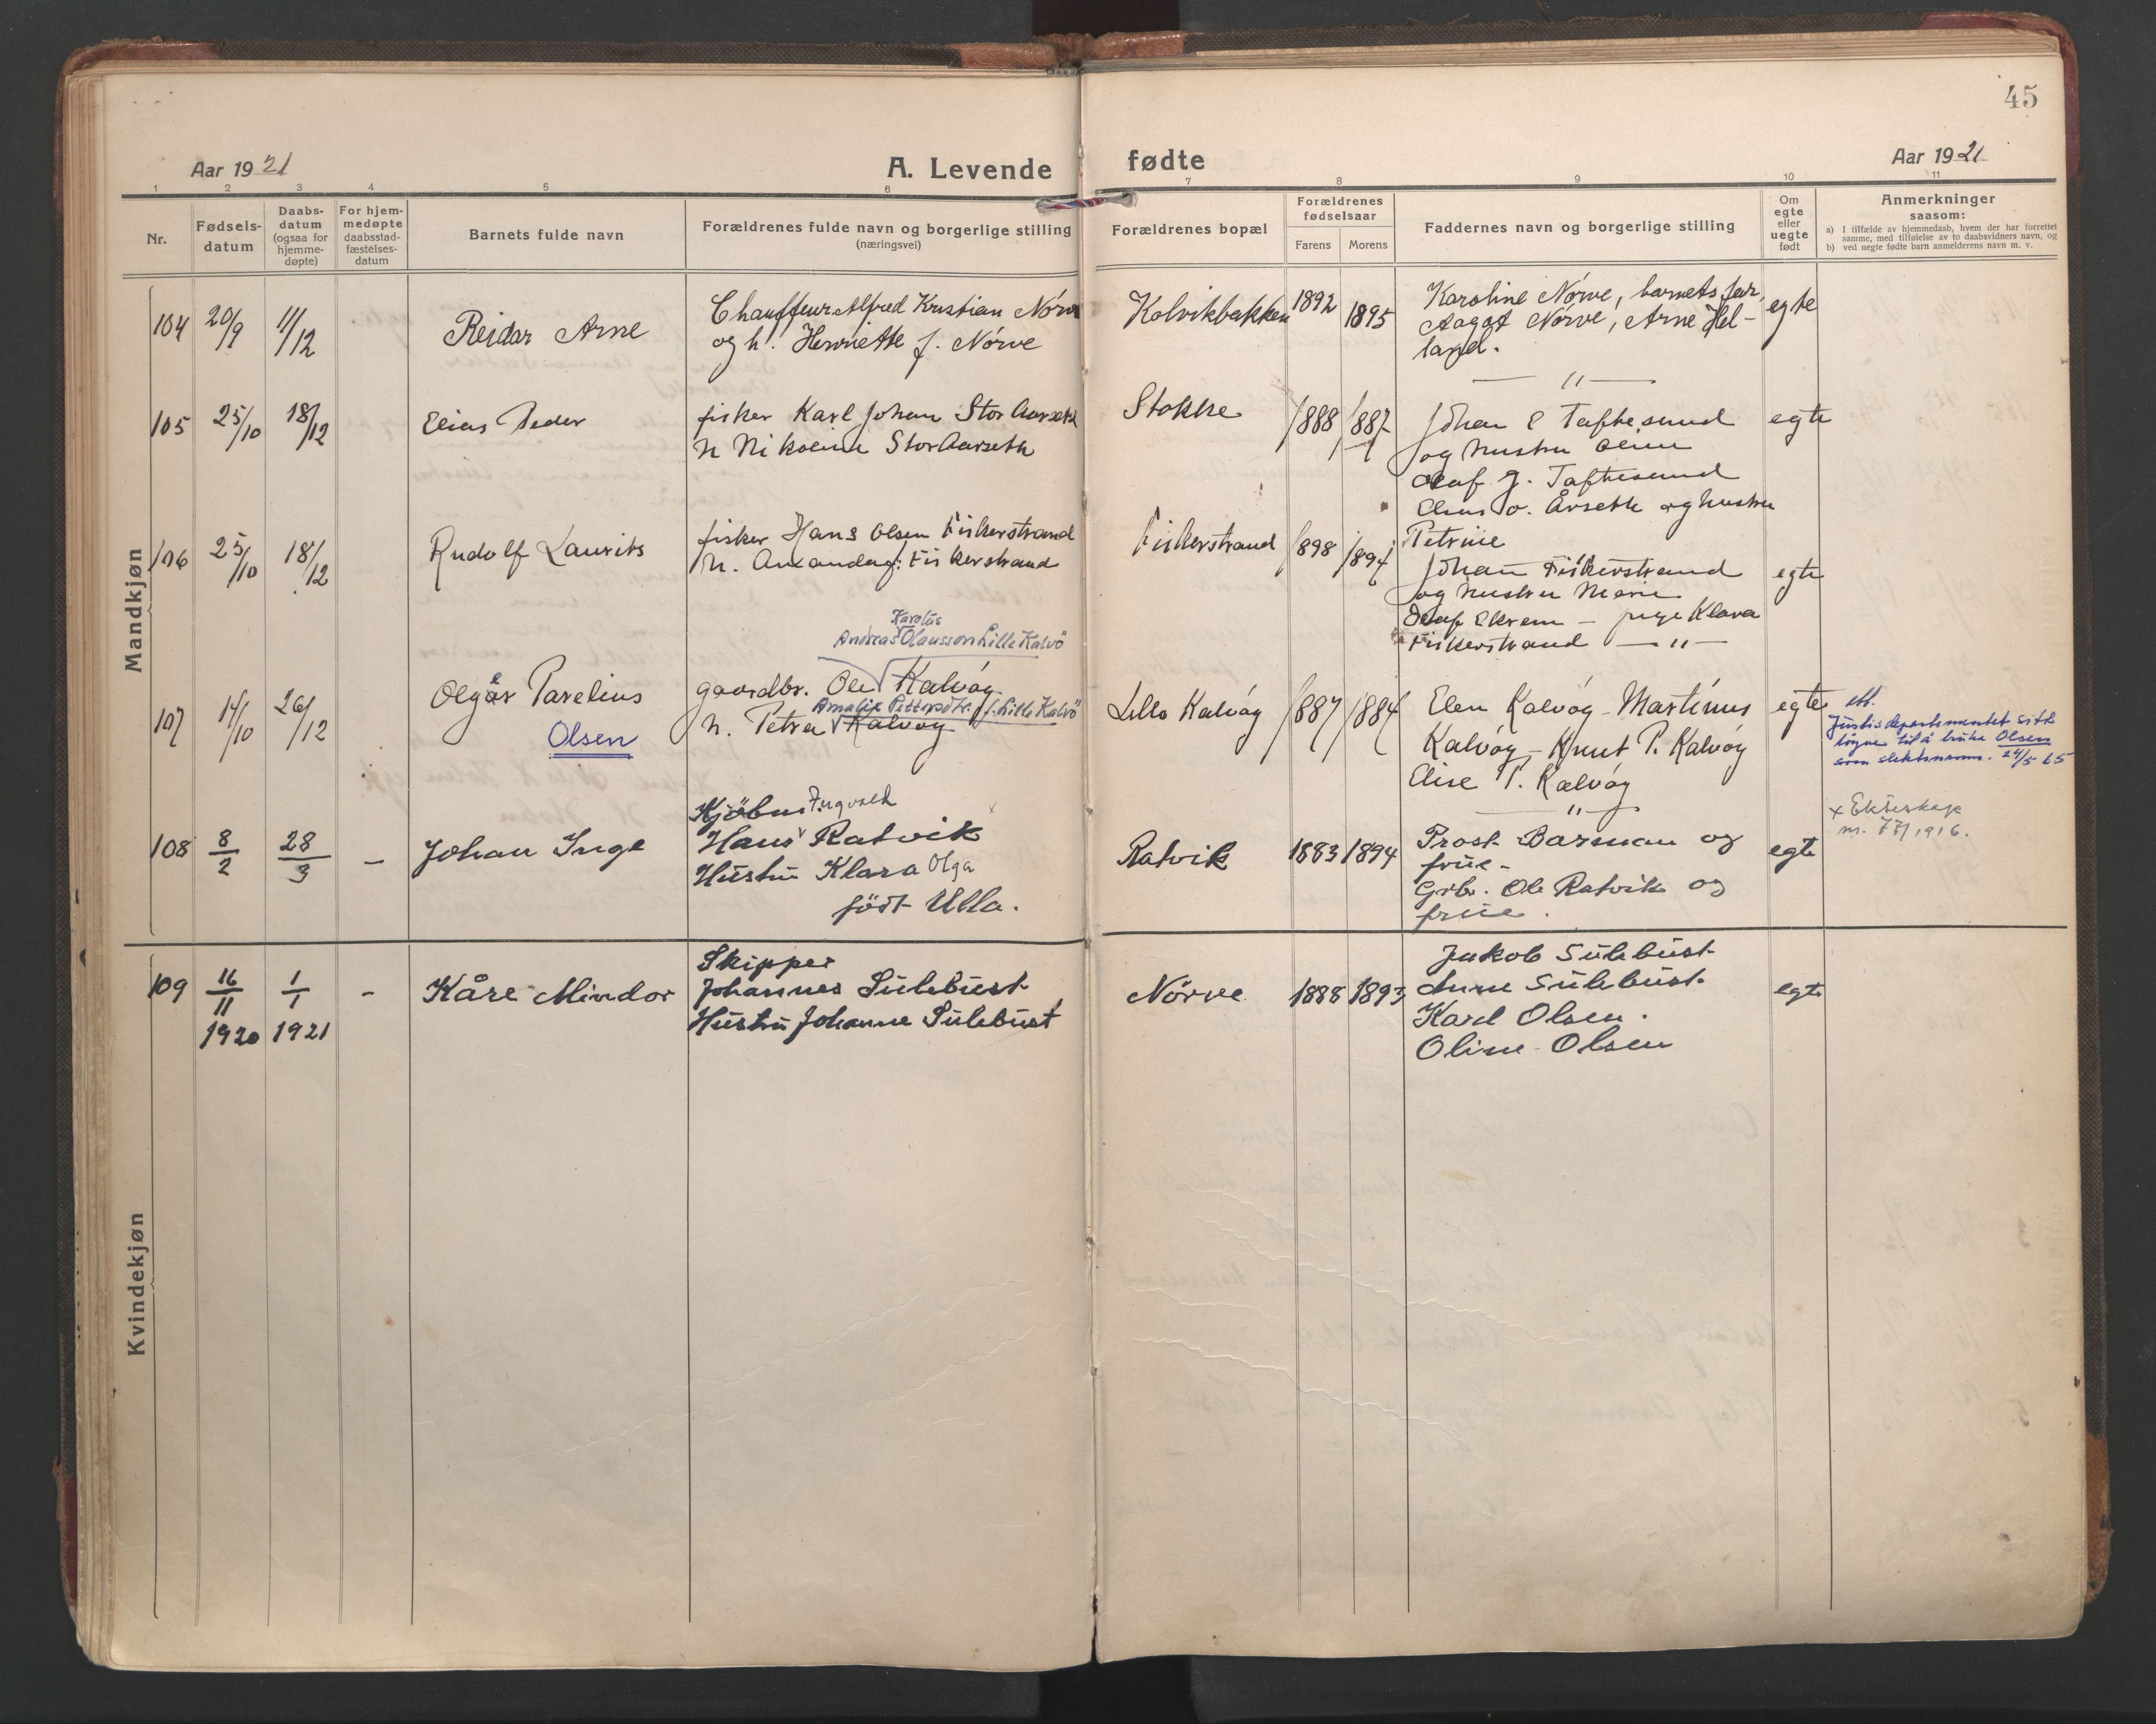 45
Aar 1921
A. Levende fødte
Aar 1921
1 2 3 4 5 6 7 8 9 10 11
Nr.
Fødsels-
datum
Daabs-
datum
(ogsaa for
hjemme-
døpte)
For hjem-
medøpte
daabsstad-
fæstelses-
datum
Barnets fulde navn
Forældrenes fulde navn og borgerlige stilling
(næringsvei)
Forældrenes bopæl
Forældrenes
fødselsaar
Farens Morens
Faddernes navn og borgerlige stilling
Om
egte
eller
uegte
født
Anmerkninger
saasom:
a) I tilfælde av hjemmedaab, hvem der har forrettet
samme, med tilføielse av to daabsvidners navn, og
b) ved uegte fødte barn anmelderens navn m. v.
Mandkjøn
104 20/9 11/12 Reidar Arne
Chauffeur Alfred Kristian Nörve
og h. Henriette f. Nörve
Kolvikbakken 1892 1895
Karoline Nörve, barnets far,
Aagot Nörve, Arne Hel-
land.
egte
— " —
105 25/10 18/12 Elias Peder
fisker Karl Johan Stor Aarseth
h Nikoline Stor Aarseth
Stokke 1888 1887
Johan E Taftesund
og hustru Oline
Olaf J. Taftesund
Elias O. Årseth og hustru
Petrine
egte
106 25/10 18/12 Rudolf Laurits
fisker Hans Olsen Fiskerstrand
h. Amanda f: Fiskerstrand
Fiskerstrand 1898 1894
Johan Fiskerstrand
og hustru Marie
Olaf Ekrem — pige Klara
Fiskerstrand — " —
egte
107 14/10 26/12 Olgar Parelius
Olsen
Karolus
Andreas Olausson Lille Kalvö
gaardbr. Ole Kalvög
Amalie Pettersdtr. f. Lille Kalvö
h. Petra Kalvög
Lille Kalvög 1887 1884
Elen Kalvög - Martinus
Kalvög - Knut P. Kalvög
Elise P. Kalvög
— " —
egte
Justisdepartementet sitt
løyve til å bruke Olsen
som slektsnamn. 24/5 65
108 8/2 28/3 — Johan Inge
Kjöbm. Ingvald
Hans Ratvik
Hustru Klara Olga
födt Ulla.
Ratvik 1883 1894
Prost Barman og
frue -
Grbr. Ole Ratvik og
frue.
egte
x Ekteskap
nr. 77/1916.
Kvindekjøn
109 16/11 1920 1/1 1921 - Kåre Mindor
Skipper
Johannes Sulebust
Hustru Johanne Sulebust
Nörve 1888 1893
Jakob Sulebust
Anne Sulebust.
Karl Olsen.
Oline Olsen
egte